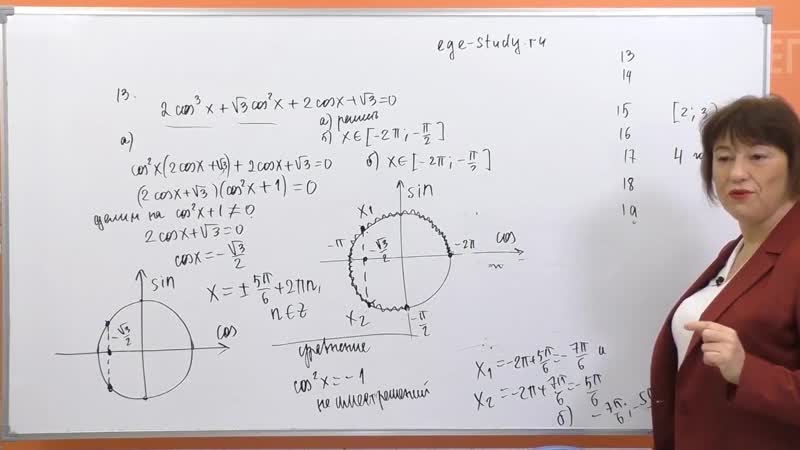 ege-study.ru
13.
2cos³x+√3cos²x+2cosx+√3=0
а) решить
б) x∈[-2π;-π/2]
а)
cos²x(2cosx+√3)+2cosx+√3=0
(2cosx+√3)(cos²x+1)=0
делим на cos²x+1≠0
2cosx+√3=0
cosx=-√3/2
sin
cos
-√3/2
x=±5π/6+2πn,
n∈Z
б) x∈[-2π;-π/2]
sin
cos
x₁
-π
-√3/2
-2π
x₂
-π/2
уравнение
cos²x=-1
не имеет решений
x₁=-2π+5π/6=-7π/6
x₂=-2π+7π/6=-5π/6
б) -7π/6;
13
14
15 [2;3)
16
17 4
18
19